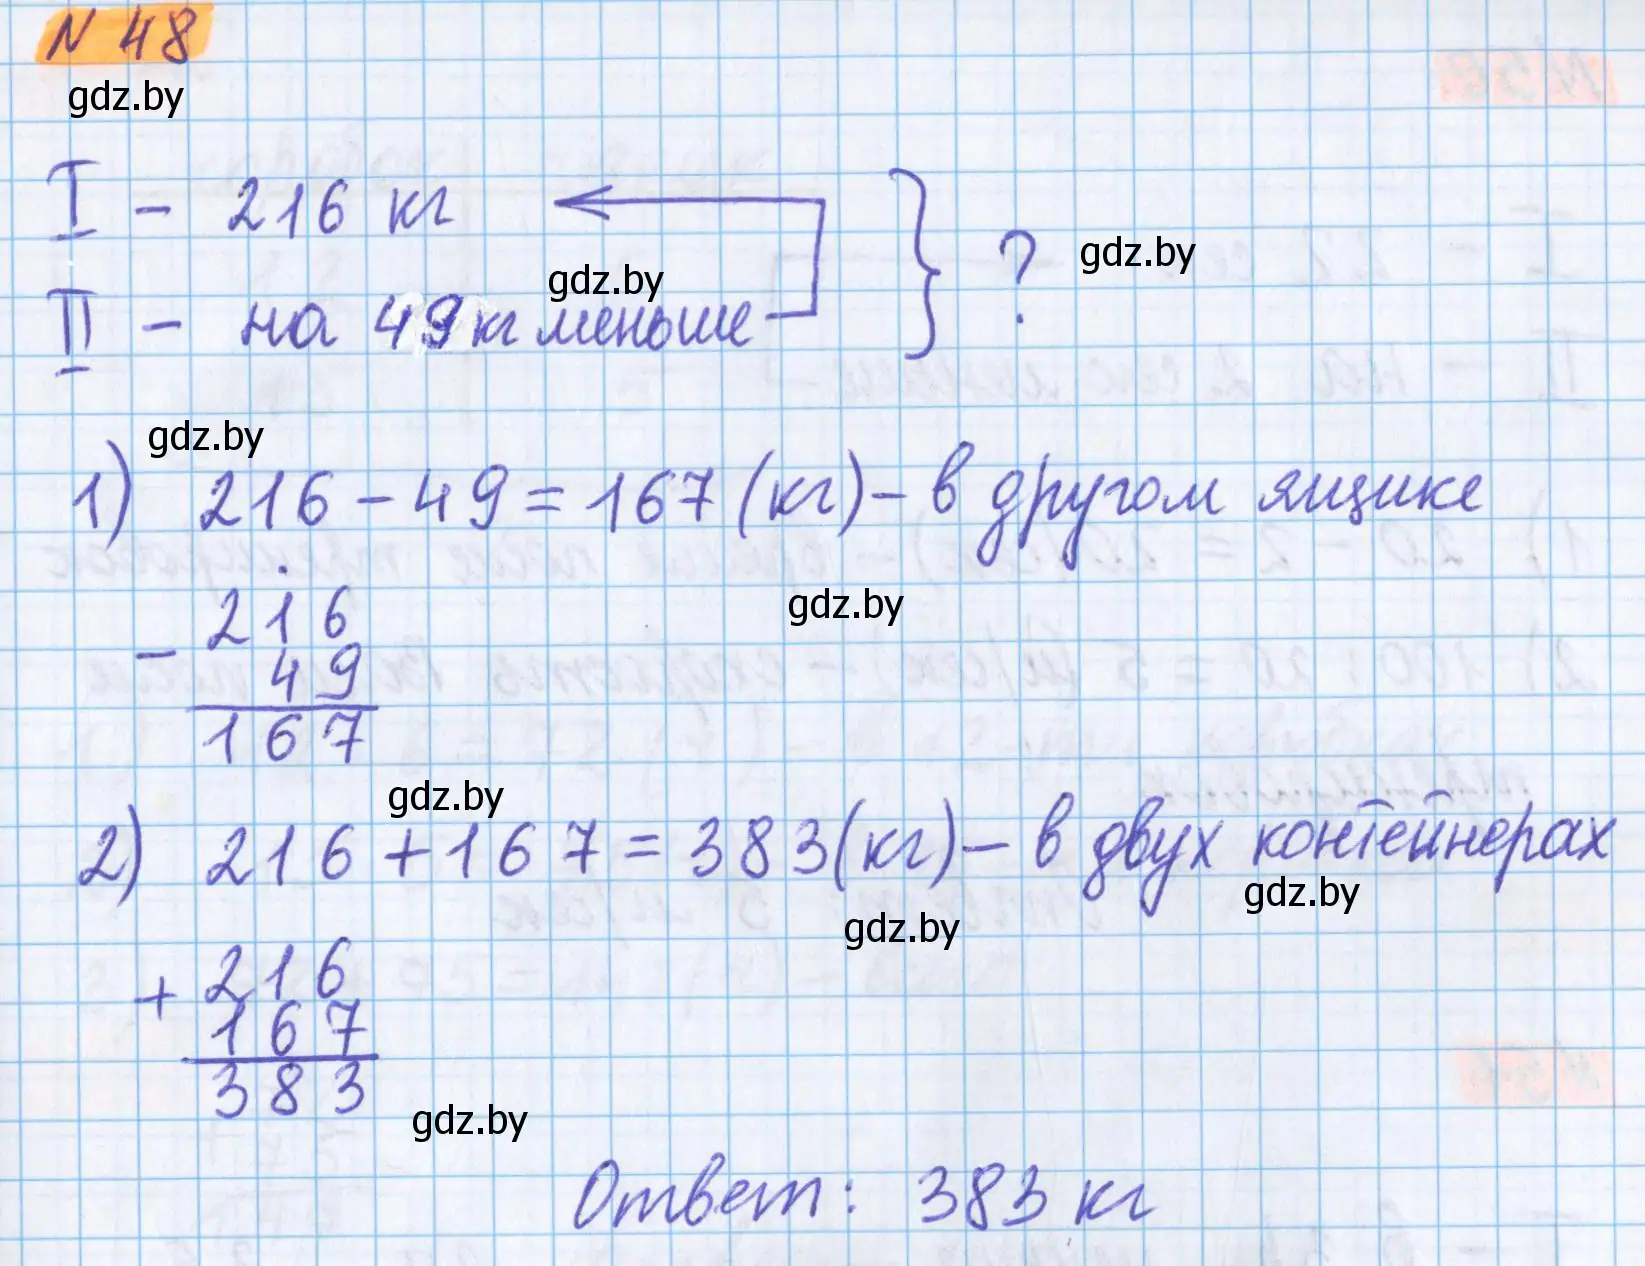 N 48
gdz.by
I - 216 кг
gdz.by
} ?
gdz.by
II - на 49 кг меньше
gdz.by
1) 216 - 49 = 167 (кг) - в другом ящике
gdz.by
- 216
49
167
gdz.by
2) 216 + 167 = 383 (кг) - в двух контейнерах
gdz.by
gdz.by
+ 216
167
383
gdz.by
Ответ: 383 кг